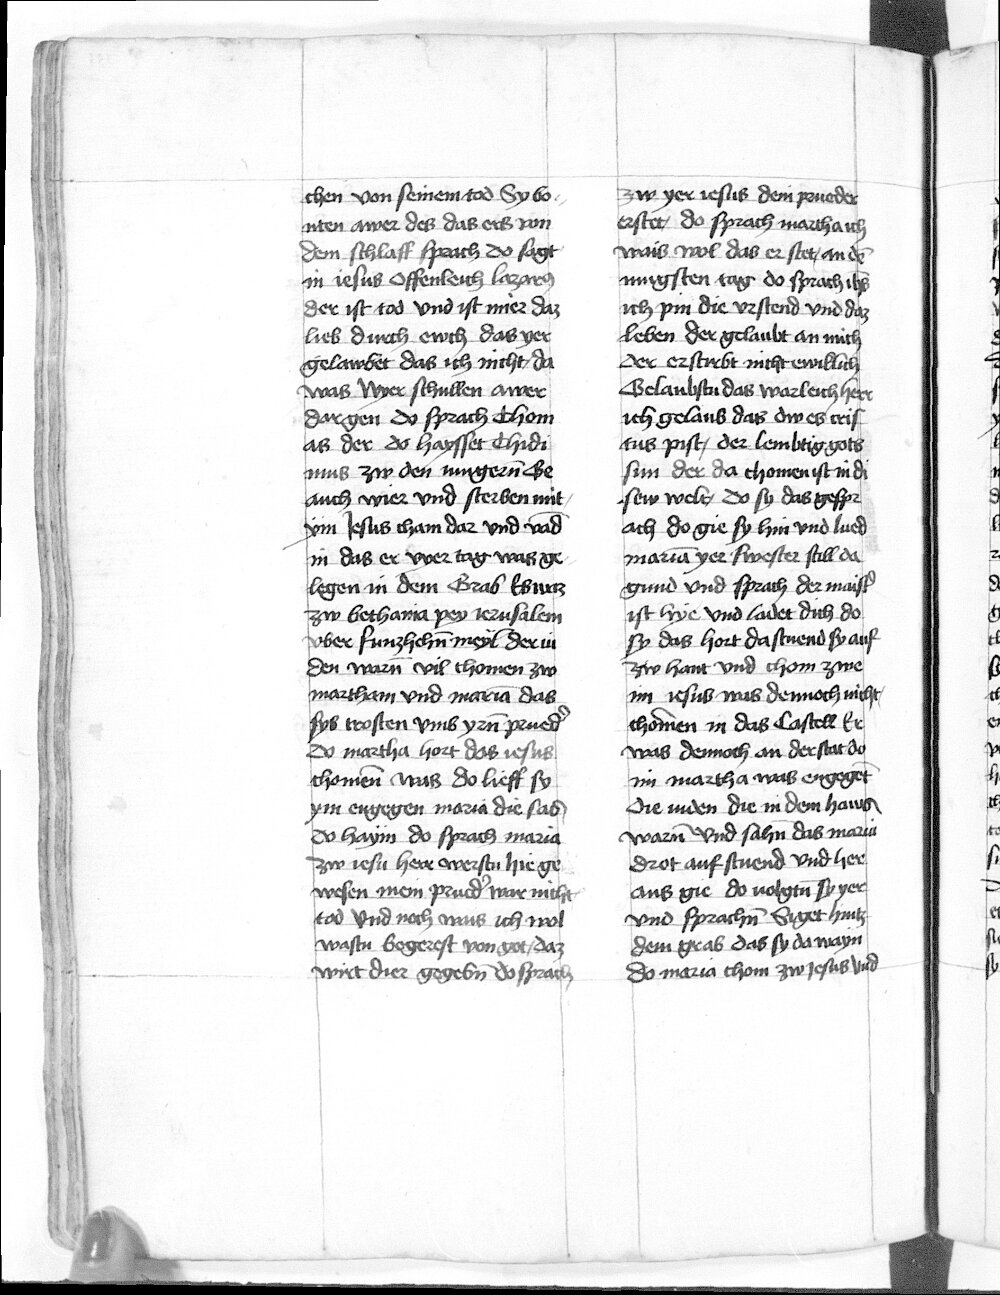 chen von seinem tod Sy vo-
nten awer des das ers von
dem schlaff sprach Do sagt
in iesus Offenleich lazarus
der ist tod vnd ist mier daz
lieb durch ewch das yer
gelawbet das ich nicht da
was Wyer schullen awer
dar gen Do sprach Thom
as der do haysset Thidi
mus zw den iungern̄ Ge
auch wier vnd sterben mit
ym Jesus cham dar vnd vād
in das er vyer tag was ge
legen in dem Grab Es waz
zw bethania pey ierusalem
vber funzhehn̄ meyl der iu
den warn̄ vil chomen zw
martham vnd mariā das
sys trosten vmb yrn̄ prued
Do martha hort das iesus
chomen̄ was do lieff sy
ym engegen maria die sas
do haym do sprach maria
zw iesu herr werstu hie ge
wesen mein prued war nicht
tod vnd noch wais ich wol
wastu begerest von got daz
wirt dier gegebn̄ Do sprach
zw yer iesus dein prueder
erstet do sprach martha ich
wais wol das er stet an dē
iungsten tag do sprach ihs
ich pin die vrstend vnd daz
leben der gelaubt an mich
der erstirbt nicht ewiklich
Gelaubstu das warleich herr
ich gelaub das dw es cris
tus pist der lembtig gots
sun der da chomen ist in di
sew welt Do sy das gespr
ach do gie sy hin vnd lued
mariā yer swester still da
gund vnd sprach der maist
ist hye vnd ladet dich do
sy das hort da stuend sy auf
zw hant vnd chom zwe
im iesus was dennoch nicht
chomen in das Castell Er
was dennoch an der stat do
im martha was engeget
Die iuden die in dem haws
warn̄ vnd sahn das maria
drot auf stuend vnd her
aus gie do volgtn̄ sy yer
vnd sprachn̄ Si get hintz
dem grab das sy da wayn
Do maria chom zw Jesus vnd